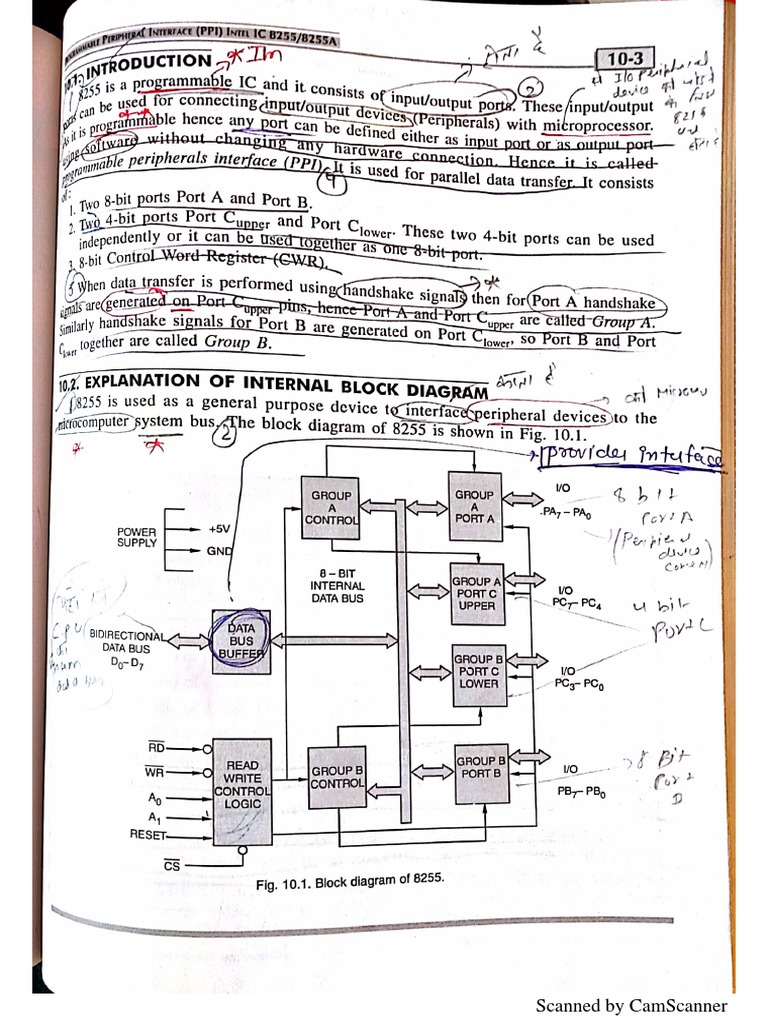 PROGRAMMABLE PERIPHERAL INTERFACE (PPI) INTEL IC 8255/8255A
10-3
10.1. INTRODUCTION * Im
8255 is a programmable IC and it consists of input/output ports. These input/output
ports can be used for connecting input/output devices (Peripherals) with microprocessor.
As it is programmable hence any port can be defined either as input port or as output port
using software without changing any hardware connection. Hence it is called
programmable peripherals interface (PPI). It is used for parallel data transfer. It consists
of :
1. Two 8-bit ports Port A and Port B.
2. Two 4-bit ports Port Cupper and Port Clower. These two 4-bit ports can be used
independently or it can be used together as one 8-bit port.
3. 8-bit Control Word Register (CWR).
When data transfer is performed using handshake signals then for Port A handshake
signals are generated on Port Cupper pins, hence Port A and Port Cupper are called Group A.
Similarly handshake signals for Port B are generated on Port Clower, so Port B and Port
Clower together are called Group B.
10.2. EXPLANATION OF INTERNAL BLOCK DIAGRAM
8255 is used as a general purpose device to interface peripheral devices to the
microcomputer system bus. The block diagram of 8255 is shown in Fig. 10.1.
provides interface
POWER
SUPPLY
+5V
GND
GROUP
A
CONTROL
GROUP
A
PORT A
I/O
PA7 – PA0
8 bit
Port A
8 – BIT
INTERNAL
DATA BUS
GROUP A
PORT C
UPPER
I/O
PC7– PC4
4 bit
Port C
BIDIRECTIONAL
DATA BUS
D0–D7
DATA
BUS
BUFFER
GROUP B
PORT C
LOWER
I/O
PC3– PC0
RD
WR
A0
A1
RESET
CS
READ
WRITE
CONTROL
LOGIC
GROUP B
CONTROL
GROUP B
PORT B
I/O
PB7– PB0
8 Bit
Port
Fig. 10.1. Block diagram of 8255.
Scanned by CamScanner